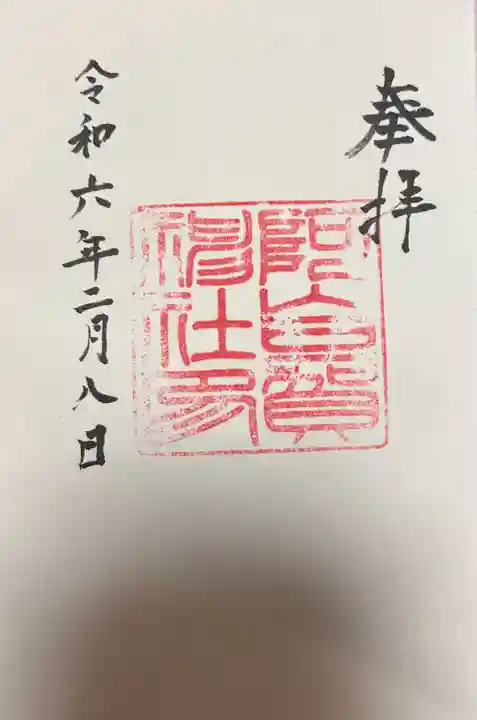 奉拝
神社印
令和六年二月八日